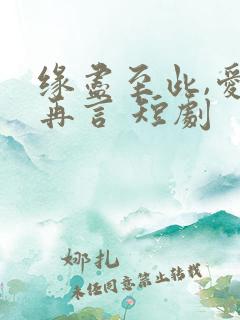 缘尽至此,爱
再言 短剧
娜扎
未经同意禁止转载